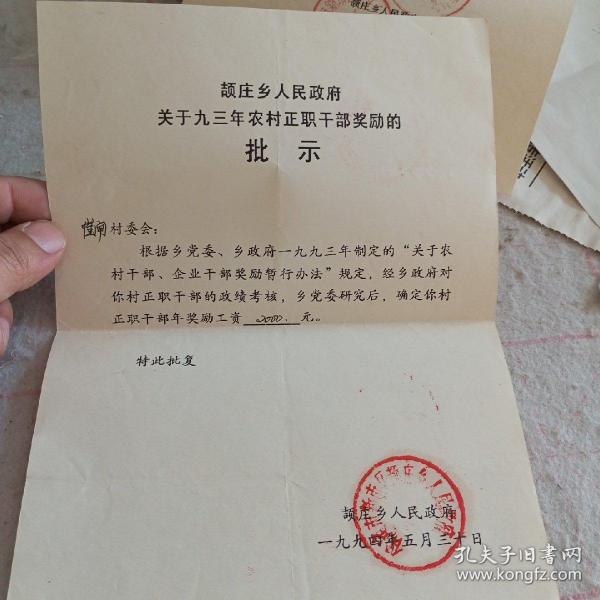 颉庄乡人民政府
关于九三年农村正职干部奖励的
批示
村委会：
根据乡党委、乡政府一九九三年制定的“关于农
村干部、企业干部奖励暂行办法”规定，经乡政府对
你村正职干部的政绩考核，乡党委研究后，确定你村
正职干部年奖励工资 2000. 元。
特此批复
颉庄乡人民政府
一九九四年五月三十日
颉庄乡人民政府
孔夫子旧书网
www.kongfz.com